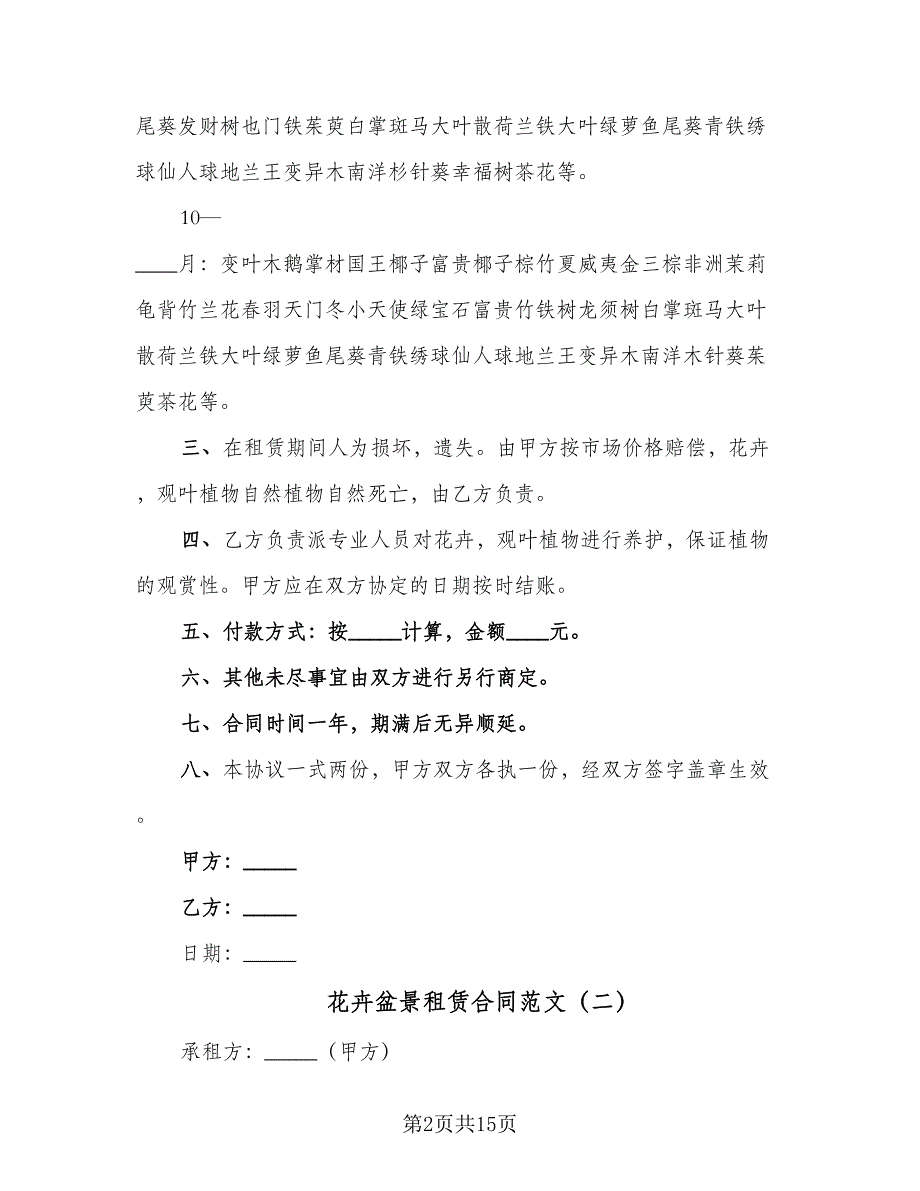 尾葵发财树也门铁茱萸白掌斑马大叶散荷兰铁大叶绿萝鱼尾葵青铁绣
球仙人球地兰王变异木南洋杉针葵幸福树茶花等。
10—
____月：变叶木鹅掌材国王椰子富贵椰子棕竹夏威夷金三棕非洲茉莉
龟背竹兰花春羽天门冬小天使绿宝石富贵竹铁树龙须树白掌斑马大叶
散荷兰铁大叶绿萝鱼尾葵青铁绣球仙人球地兰王变异木南洋木针葵茱
萸茶花等。
三、在租赁期间人为损坏，遗失。由甲方按市场价格赔偿，花卉
，观叶植物自然植物自然死亡，由乙方负责。
四、乙方负责派专业人员对花卉，观叶植物进行养护，保证植物
的观赏性。甲方应在双方协定的日期按时结账。
五、付款方式：按_____计算，金额____元。
六、其他未尽事宜由双方进行另行商定。
七、合同时间一年，期满后无异顺延。
八、本协议一式两份，甲方双方各执一份，经双方签字盖章生效
。
甲方：_____
乙方：_____
日期：_____
花卉盆景租赁合同范文（二）
承租方：_____（甲方）
第2页共15页